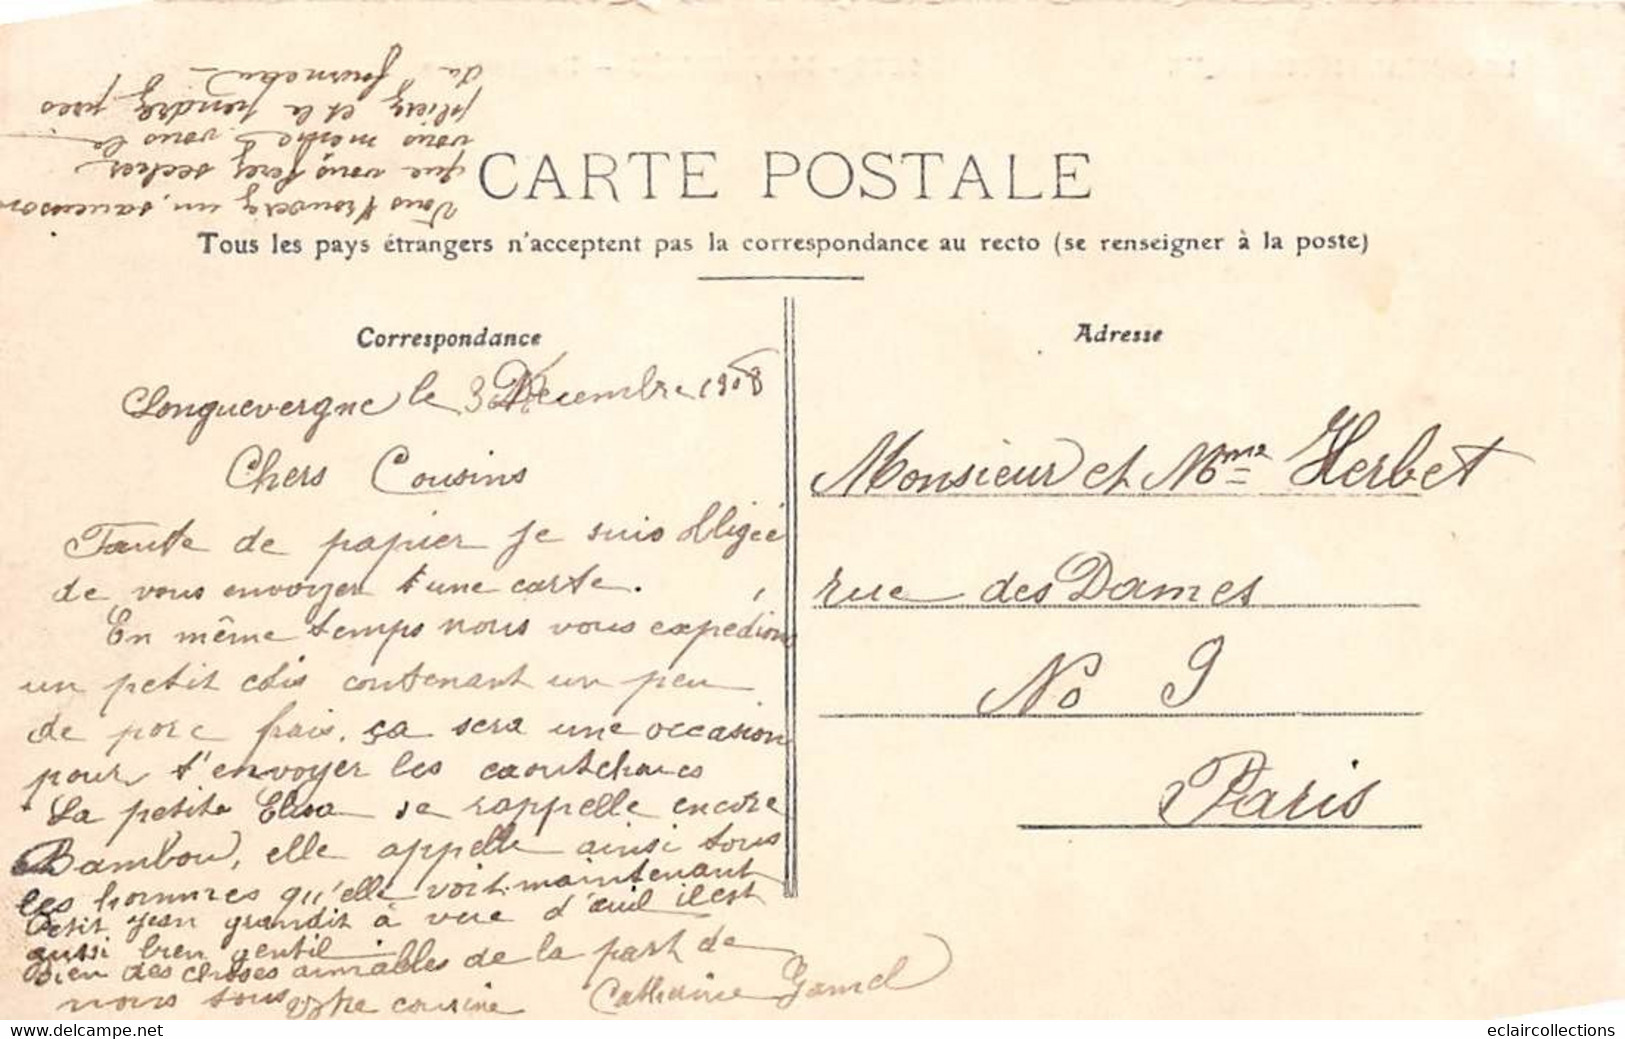 Vous trouverez un saucisson
que vous ferez secher
vous même vous le
plierez et le pendrez pres
du fourneau
CARTE POSTALE
Tous les pays étrangers n'acceptent pas la correspondance au recto (se renseigner à la poste)
Correspondance
Adresse
Longuevergne le 3 Décembre 1908
Chers Cousins
Faute de papier je suis obligée
de vous envoyer t'une carte.
En même temps nous vous expedions
un petit colis contenant un peu
de porc frais. ça sera une occasion
pour t'envoyer les caoutchoucs
La petite Elisa se rappelle encore
Bambou, elle appelle ainsi tous
les hommes qu'elle voit maintenant
Petit Jean grandit à vue d'œuil il est
aussi bien gentil
Bien des choses aimables de la part de
nous tous Votre cousine Catherine
Monsieur et Mme Herbet
rue des Dames
No 9
Paris
eclaircollections